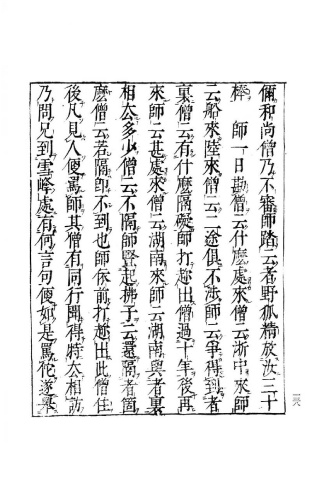 儞和尚僧乃不審師踏云者野狐精放汝三十
棒　師一日勘僧云什麽處來僧云浙中來師
云船來陸來僧云二途俱不涉師云爭得到者
裏僧云有什麽隔礙師打趂出僧過十年後再
來師云甚處來僧云湖南來師云湖南與者裏
相去多少僧云不隔師竪起拂子云還隔者箇
麽僧云若隔卽不到也師依前打趂出此僧住
後凡見人便罵師其僧有同行聞得特去相訪
乃問兄到雪峰處有何言句便如是罵佗遂舉